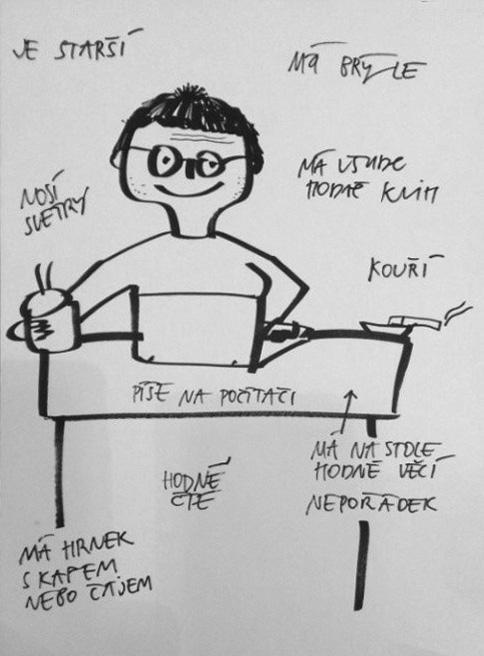 JE STARŠÍ
MÁ BRÝLE
MÁ VŠUDE
HODNĚ KNIH
NOSÍ
SVETRY
KOUŘÍ
PÍŠE NA POČÍTAČI
MÁ NA STOLE
HODNĚ VĚCÍ
NEPOŘÁDEK
HODNĚ
ČTE
MÁ HRNEK
S KAFEM
NEBO ČAJEM